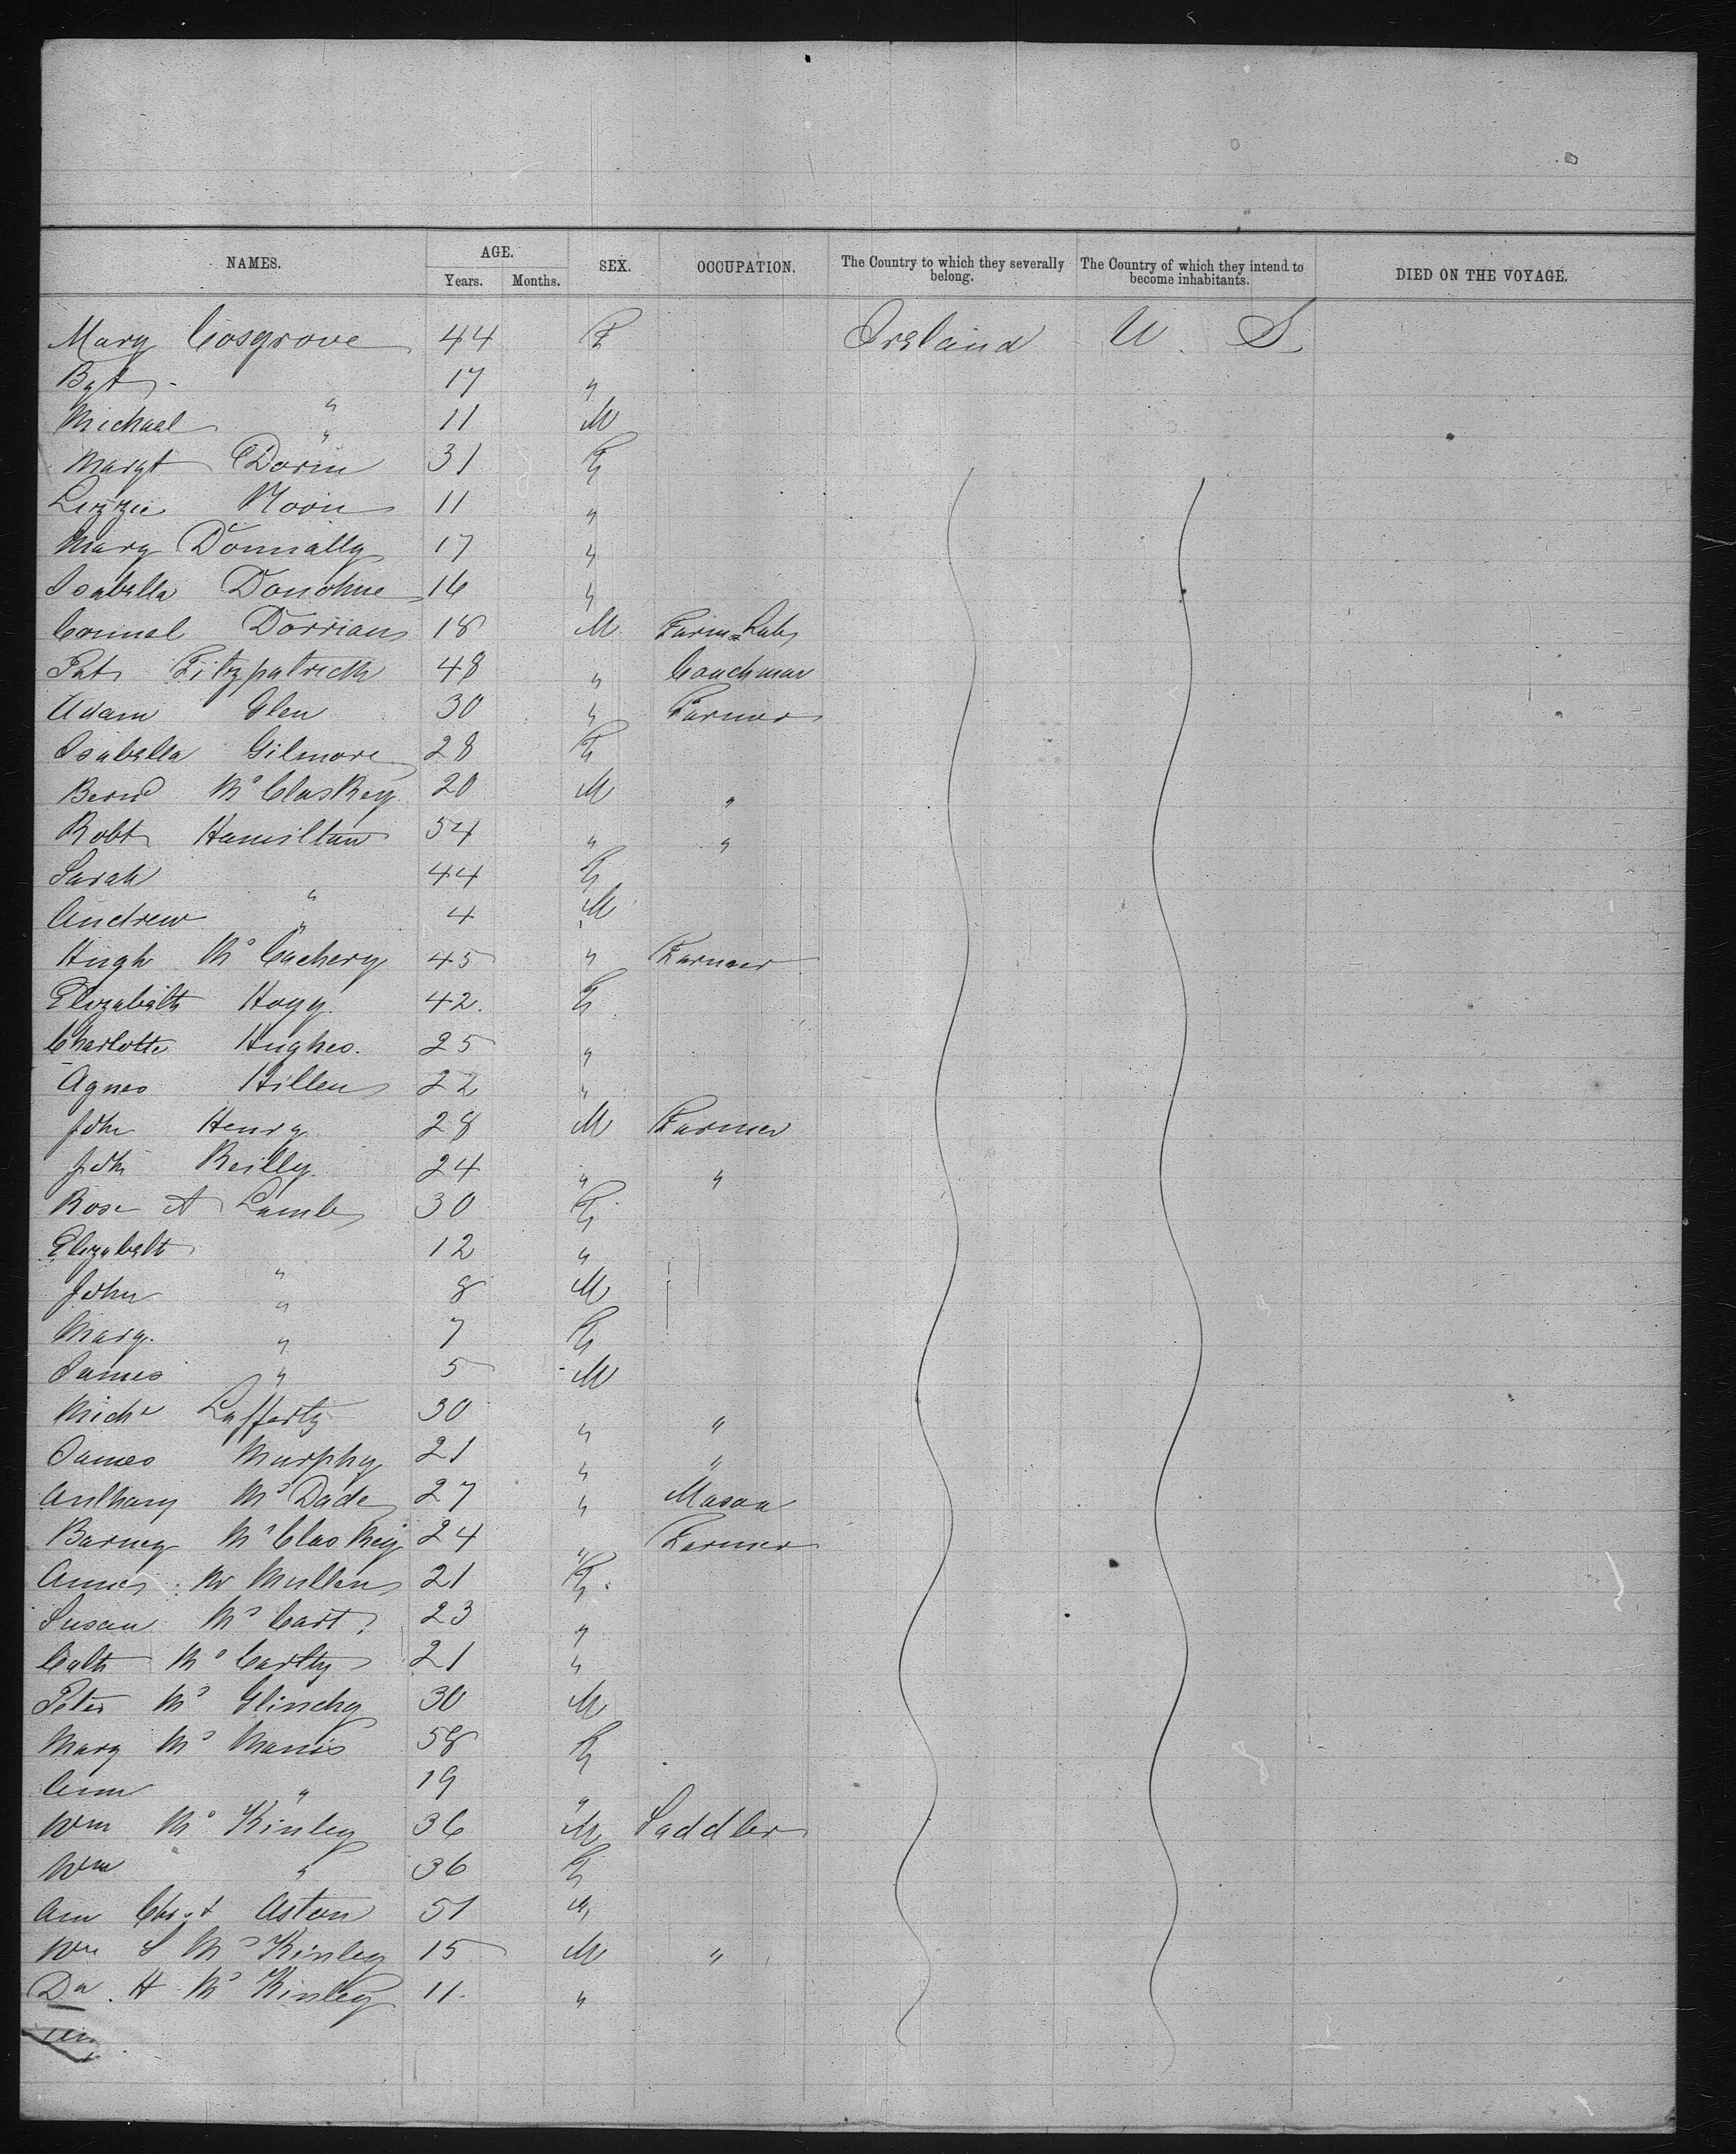 NAMES. AGE. SEX. OCCUPATION. The Country to which they severally belong. The Country of which they intend to become inhabitants. DIED ON THE VOYAGE.
Years. Months.
Mary Cosgrove 44 F Ireland U. S.
Bgt " 17 "
Michael " 11 M
Margt Dorin 31 F
Lizzie Moon 11 "
Mary Donnally 17 "
Isabella Donohue 16 "
Connel Dorrian 18 M Farm Lab
Pat Fitzpatrick 48 " Coachman
Adam Glen 30 " Farmer
Isabella Gilmore 28 F
Bernd McClaskey 20 M "
Robt Hamilton 54 " "
Sarah " 44 F
Andrew " 4 M
Hugh McCachery 45 " Farmer
Elizabeth Hogg. 42. F
Charlotte Hughes. 25 "
Agnes Hillen 22 "
John Henry 28 M Farmer
John Reilly. 24 " "
Rose A Lamb 30 F
Elizabeth " 12 "
John " 8 M
Mary. " 7 F
James " 5 M
Michl Lafferty 30 " "
James Murphy 21 " "
Anthony McDade 27 " Mason
Barney McClaskey 24 " Farmer
Annes Mc Mullen 21 F
Susan McCart 23 "
Cath McCarthy 21 "
Peter McGlinchy 30 M
Mary McManis 58 F
Ann " 19 "
Wm McKinley 36 M Saddler
Wm " 36 F
Ann Aston 51 "
Wm S McKinley 15 M "
Da. H McKinley 11. "